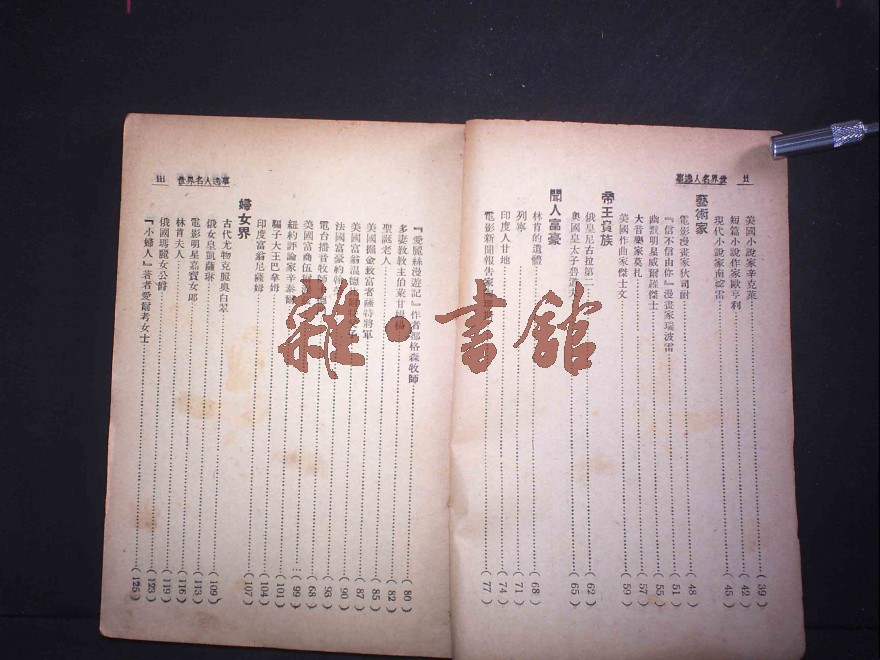 世界名人逸事 II
美國小說家辛克萊 (39)
短篇小說作家歐亨利 (42)
現代小說家南孛雷 (45)
藝術家
電影漫畫家狄司耐 (48)
『信不信由你』漫畫家瑞波雷 (51)
幽默明星威爾羅傑士 (55)
大音樂家莫札 (57)
美國作曲家傑士文 (59)
帝王貴族
俄皇尼古拉第二 (62)
奧國皇太子魯道夫 (65)
聞人富豪
林肯的遺體 (68)
列寧 (71)
印度人甘地 (74)
電影新聞報告家 (77)
世界名人逸事 III
『愛麗絲漫遊記』作者都格森牧師 (80)
多妻教教主伯萊甘 楊 (82)
聖誕老人 (85)
美國掘金致富者薩特將軍 (87)
美國富翁溫德 (90)
法國富豪約翰 (93)
電台播音牧師 (68)
美國富商伍爾 (99)
紐約評論家辛泰爾 (101)
騙子大王巴拿姆 (104)
印度富翁尼薩姆 (107)
婦女界
古代尤物克麗奧白翠 (109)
俄女皇凱薩琳 (113)
電影明星嘉寶女郎 (116)
林肯夫人 (119)
俄國瑪麗女公爵 (123)
『小婦人』著者愛爾考女士 (125)
雜·書館